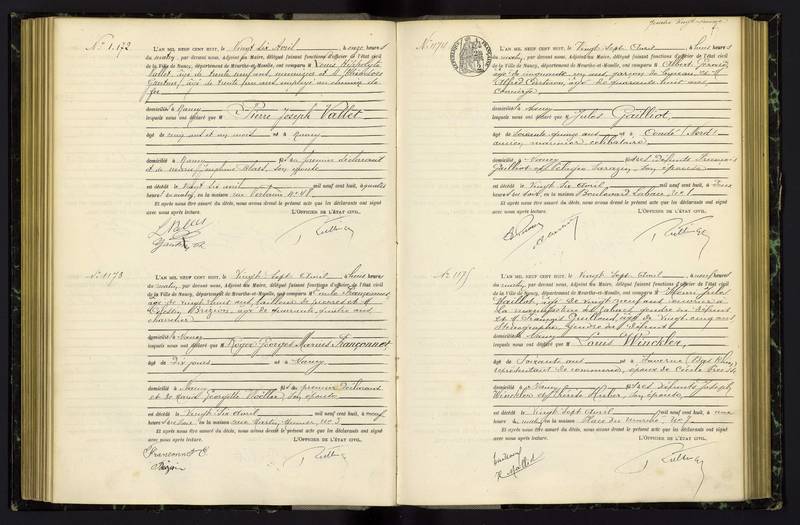 N° 1.172
L'AN MIL NEUF CENT HUIT, le Vingt six Avril, à onze heures
du matin, par devant nous, Adjoint au Maire, délégué faisant fonctions d'officier de l'état civil
de la Ville de Nancy, département de Meurthe-et-Moselle, ont comparu M Louis Hippolyte
Vallet, âgé de trente neuf ans, menuisier et M
Gautier, âgé de trente ans, employé au chemin de
fer
domicilié à Nancy
lesquels nous ont déclaré que M Pierre Joseph Vallet
âgé de cinq ans et un mois né à Nancy
domicilié à Nancy fils du premier déclarant
et de Joséphine son épouse
est décédé le vingt six avril mil neuf cent huit, à
heures du matin, en la maison rue Verlaine N° 48
Et après nous être assuré du décès, nous avons dressé le présent acte que les déclarants ont signé
avec nous après lecture. L'OFFICIER DE L'ÉTAT CIVIL,
N° 1173
L'AN MIL NEUF CENT HUIT, le Vingt Sept Avril, à huit heures
du matin, par devant nous, Adjoint au Maire, délégué faisant fonctions d'officier de l'état civil
de la Ville de Nancy, département de Meurthe-et-Moselle, ont comparu M Emile Françonnet
âgé de vingt huit ans, tailleur de pierres et M
Célestin Brizion, âgé de quarante quatre ans
charretier
domicilié à Nancy
lesquels nous ont déclaré que M Roger Georges Marius Françonnet
âgé de Dix jours né à Nancy
domicilié à Nancy fils du premier Déclarant
et de Marie Georgette son épouse
est décédé le Vingt Six Avril mil neuf cent huit, à neuf
heures du soir, en la maison rue Martin, N° 3
Et après nous être assuré du décès, nous avons dressé le présent acte que les déclarants ont signé
avec nous après lecture. L'OFFICIER DE L'ÉTAT CIVIL,
Franconnet E
N° 1174
L'AN MIL NEUF CENT HUIT, le Vingt Sept Avril, à huit heures
du matin, par devant nous, Adjoint au Maire, délégué faisant fonctions d'officier de l'état civil
de la Ville de Nancy, département de Meurthe-et-Moselle, ont comparu M Albert
âgé de cinquante un ans, garçon de bureau et M
Alfred âgé de quarante huit ans,
concierge
domicilié à Nancy
lesquels nous ont déclaré que M Jules Gailliot,
âgé de Soixante quinze ans né à Condé (Nord)
ancien marinier célibataire
domicilié à Nancy fils des Défunts François
Gailliot et son épouse
est décédé le Vingt six Avril mil neuf cent huit, à
heures du soir, en la maison Boulevard Lobau N° 1
Et après nous être assuré du décès, nous avons dressé le présent acte que les déclarants ont signé
avec nous après lecture. L'OFFICIER DE L'ÉTAT CIVIL,
N° 1175
L'AN MIL NEUF CENT HUIT, le Vingt Sept Avril, à neuf heures
du matin, par devant nous, Adjoint au Maire, délégué faisant fonctions d'officier de l'état civil
de la Ville de Nancy, département de Meurthe-et-Moselle, ont comparu M Henri Jules
Maillot, âgé de vingt neuf ans ouvrier à
la manufacture de tabacs, gendre du défunt
et M François âgé de vingt cinq ans
Sténographe Gendre du Défunt
domicilié à Nancy
lesquels nous ont déclaré que M Louis Winckler,
âgé de Soixante ans né à Saverne (Bas Rhin)
représentant de commerce, époux de Cécile
domicilié à Nancy fils des défunts Joseph
Winckler et Thérèse son épouse
est décédé le Vingt Sept Avril mil neuf cent huit, à une
heure du matin, en la maison Place du marché, N° 7
Et après nous être assuré du décès, nous avons dressé le présent acte que les déclarants ont signé
avec nous après lecture. L'OFFICIER DE L'ÉTAT CIVIL,
H. Maillot